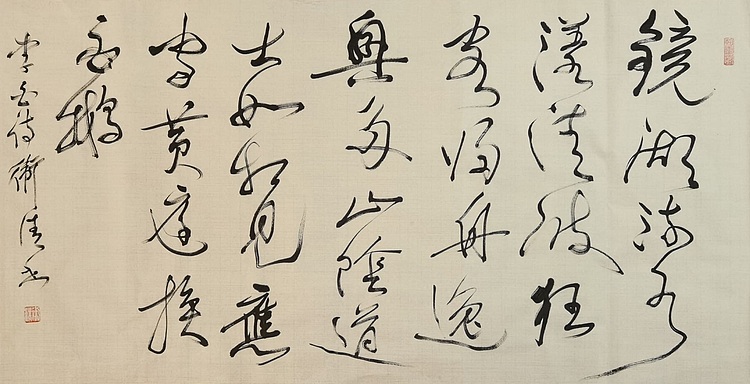 鏡湖流水
漾清波狂
客歸舟逸
興多山陰道
士如相見應
寫黃庭換
白鵝
李白詩 衛清書